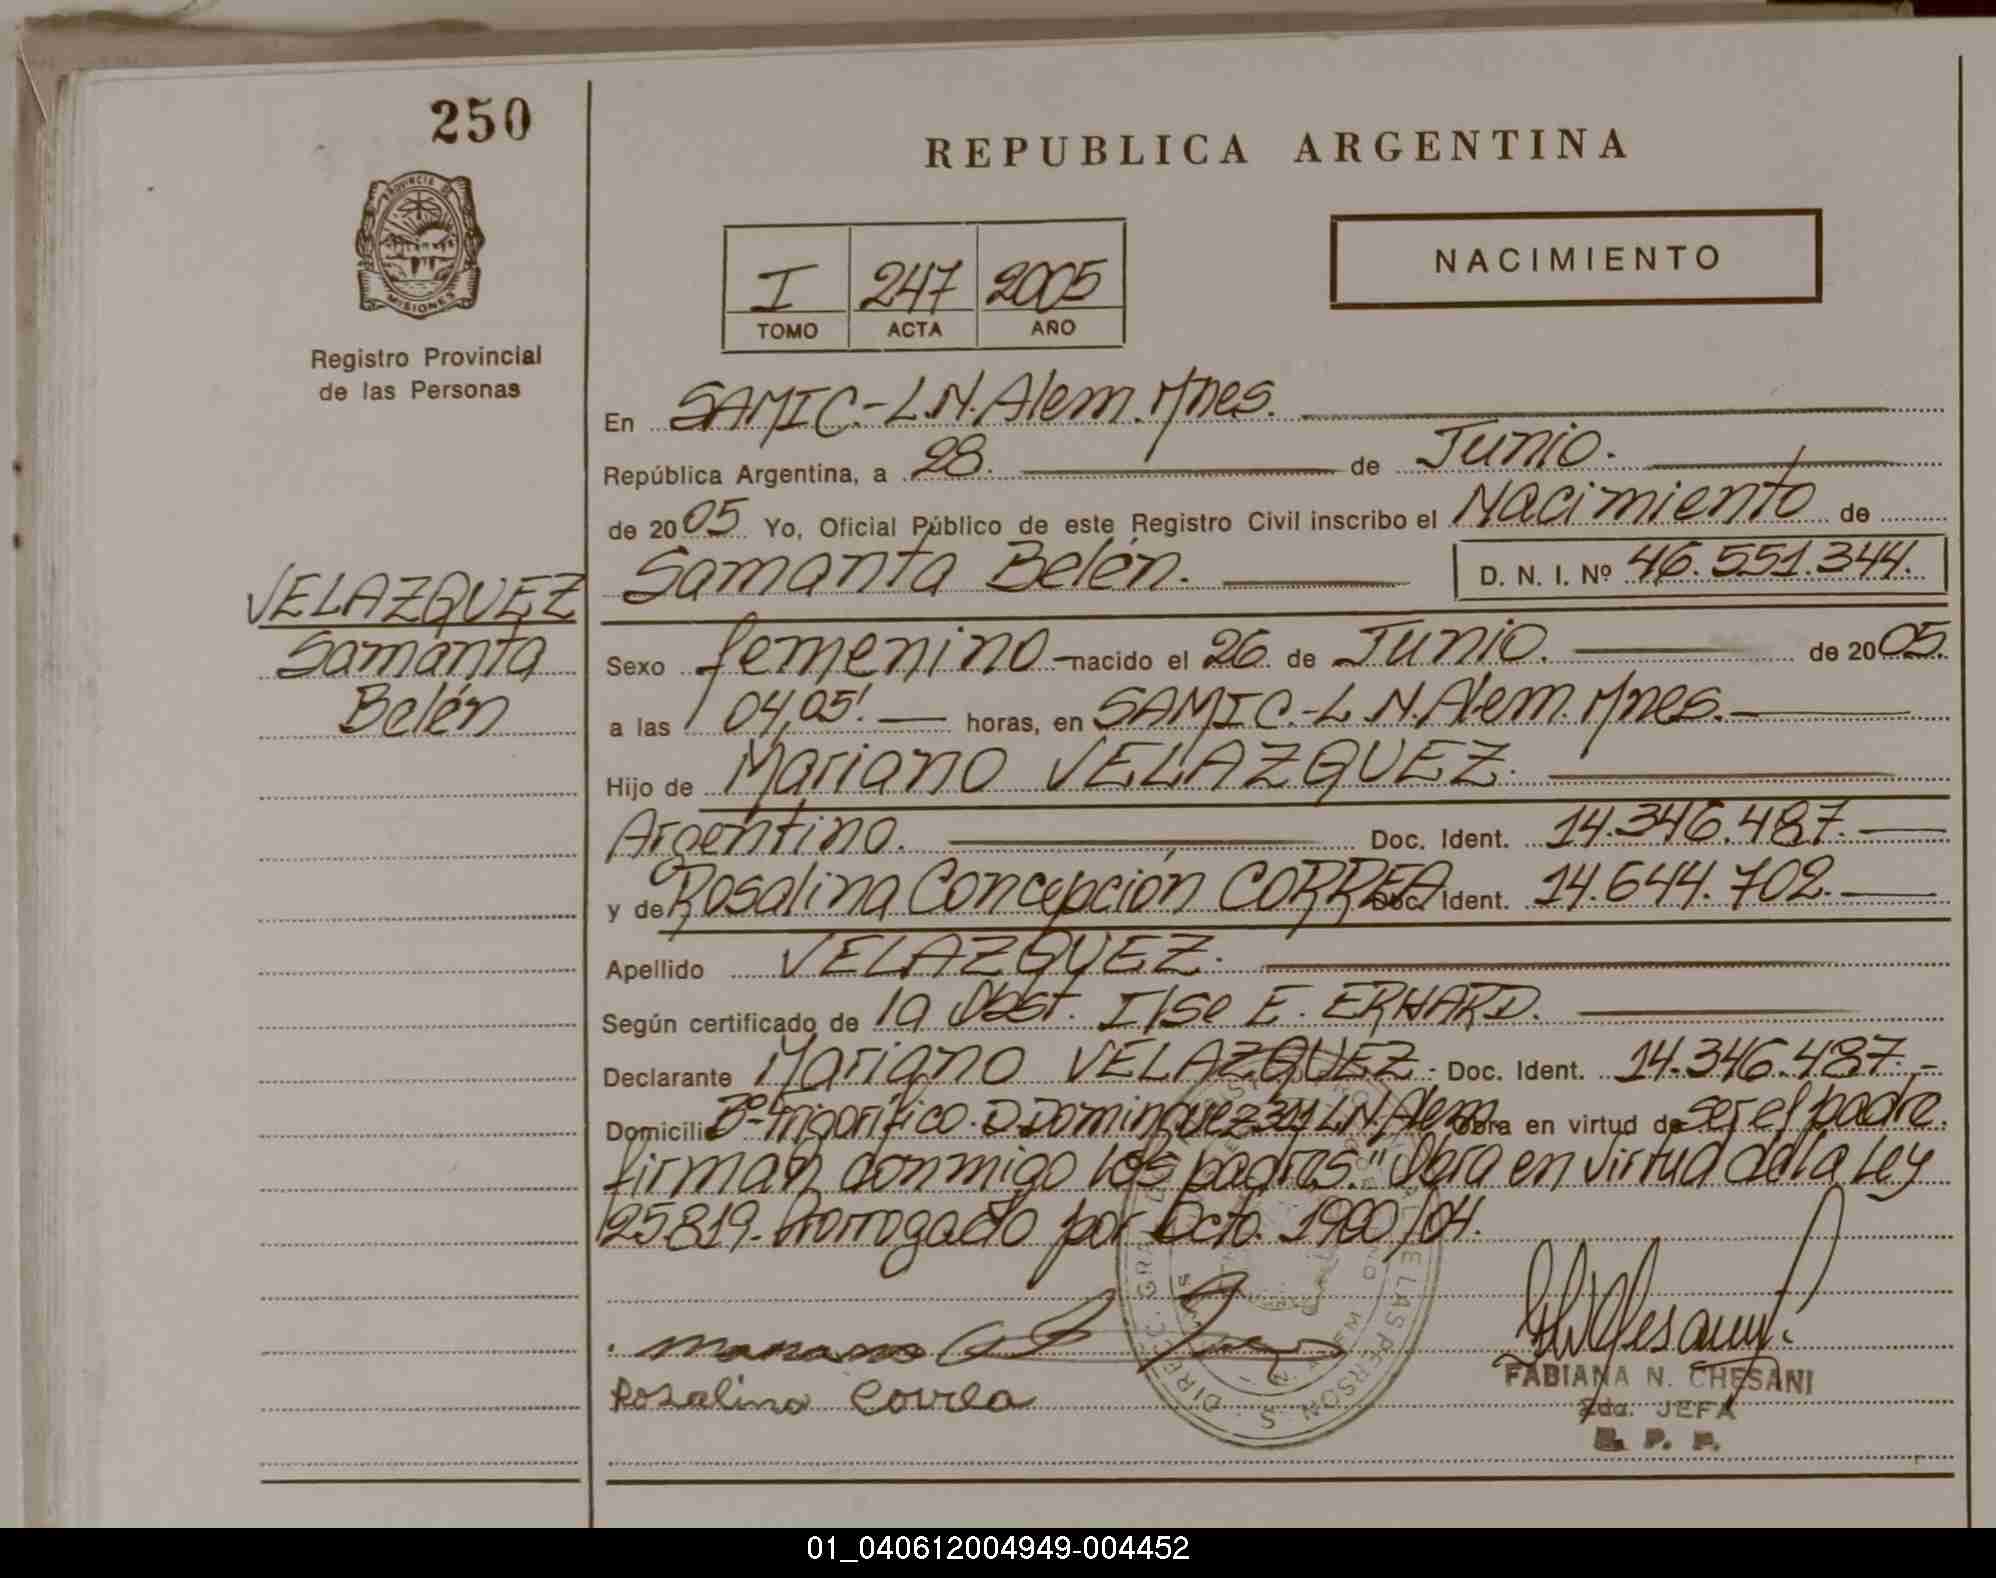 250
REPUBLICA ARGENTINA
PROVINCIA DE
MISIONES
Registro Provincial
de las Personas
I 247 2005
TOMO ACTA AÑO
NACIMIENTO
En SAMIC.-L.N.Alem.Mnes.
República Argentina, a 28. de Junio.
de 2005 Yo, Oficial Público de este Registro Civil inscribo el Nacimiento de
Samanta Belén. D. N. I. Nº 46.551.344.
VELAZQUEZ
Samanta
Belén
Sexo femenino nacido el 26 de Junio. de 2005.
a las 04,05'. horas, en SAMIC.-L.N.Alem.Mnes.
Hijo de Mariano VELAZQUEZ.
Argentino. Doc. Ident. 14.346.487.
y de Rosalina Concepción CORREA Doc. Ident. 14.644.702.
Apellido VELAZQUEZ.
Según certificado de la Obst. Ilse E. ERHARD.
Declarante Mariano VELAZQUEZ. Doc. Ident. 14.346.487.-
Domicilio Bº-Frigorífico. D.Dominguez 311 L.N.Alem Obra en virtud de ser el padre.
firman conmigo los padres." Obra en virtud de la Ley
25819. Prorrogado por Dcto. 1990/04.
Rosalina Correa
FABIANA N. CHESANI
2da. JEFA
R. P. P.
01_040612004949-004452